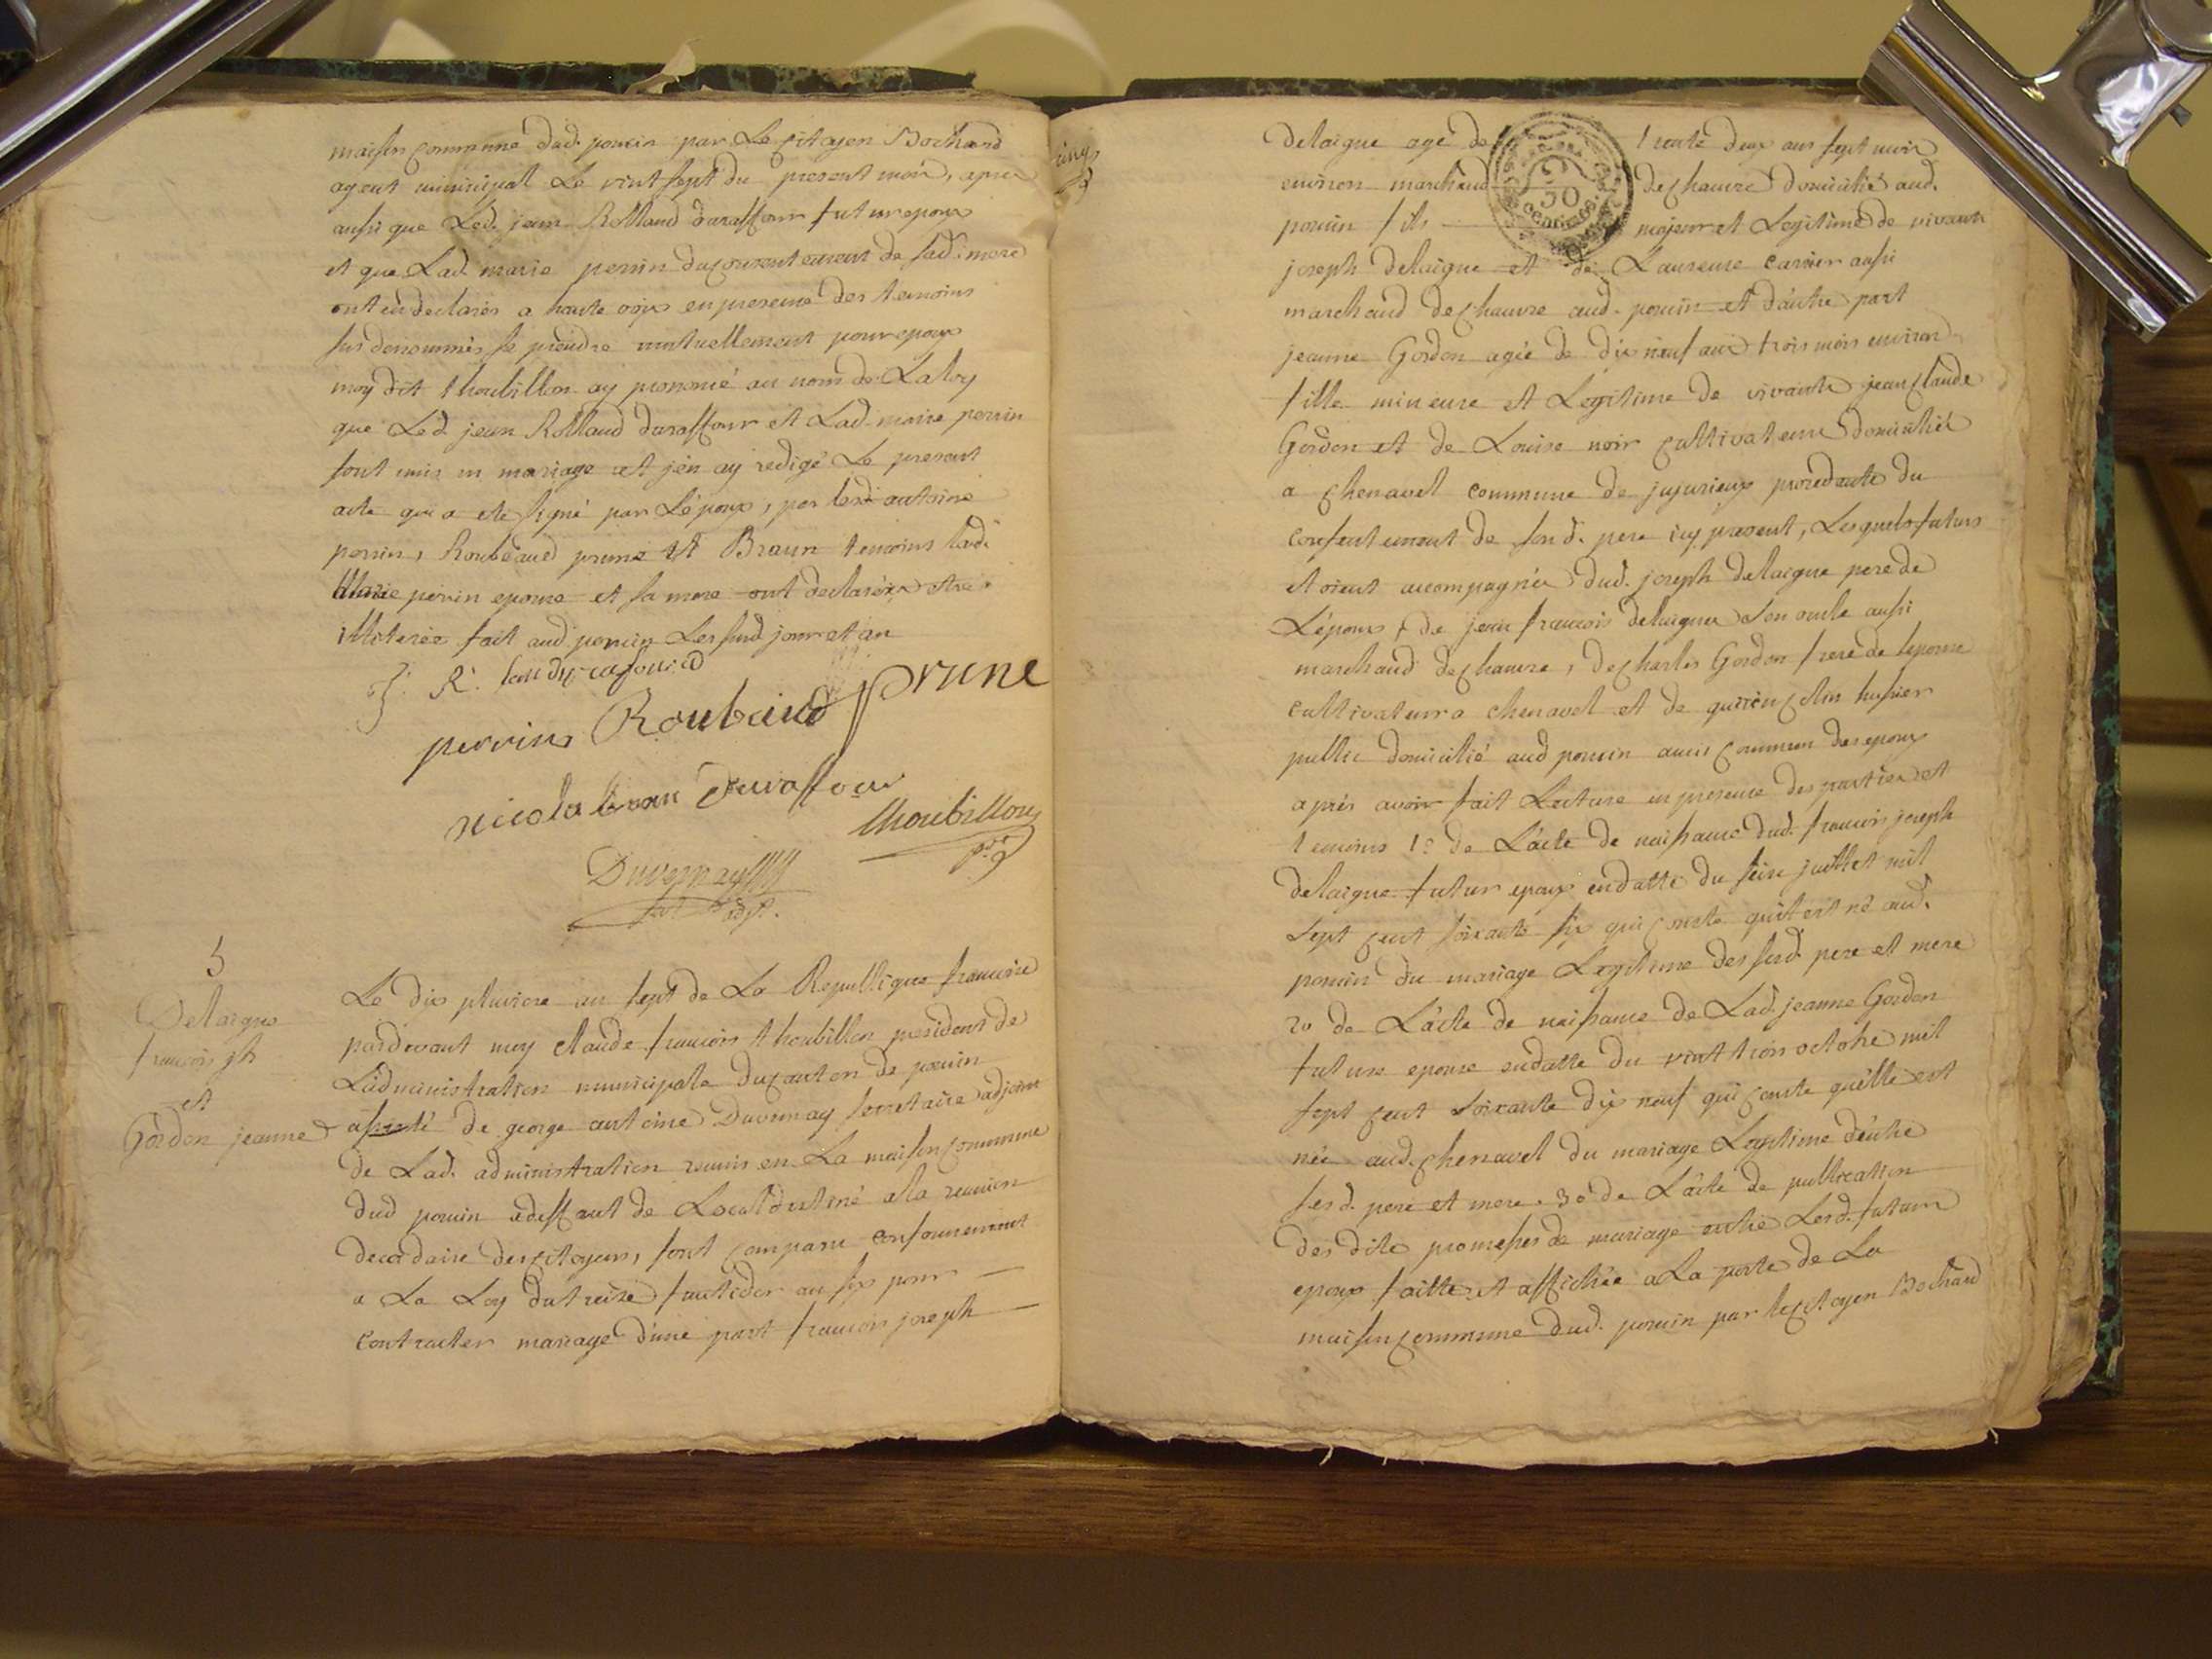 maison commune dud. poncin par Le citoyen Bochard
agent municipal Le vint sept du present mois, apres
aussi que Led. jean Rolland durafour futur epoux
et que Lad. marie perrin du consentement de sad. mere
ont eu declarés a haute voix en presence des temoins
sus denommés se prendre mutuellement pour epoux
moy dit thoubillon ay prononcé au nom de La loy
que Led. jean Rolland duraffour et Lad. marie perrin
sont unis en mariage et j'en ay redigé Le present
acte qui a ete signé par L'epoux, par lesd. antoine
perrin, Roubaud prune et Braun temoins lad.
Marie perrin epouse et sa mere ont declarées etre
illiterées fait aud poncin Les susd jour et an
J. R.
perrin Roubaud prune
nicola braun Duraffour
thoubillon
pt
Duvernay
5
Delaigue
francois jh
et
Gordon jeanne
Le dix pluviose an sept de La Republique francoise
pardevant moy claude francois thoubillon president de
L'administration municipale du canton de poncin
assisté de george antoine Duvernay secretaire adjoint
de Lad. administration reunis en La maison commune
dud poncin adeffaut de Local destiné a la reunion
decadaire des citoyens, sont comparu conformement
a La Loy du treize fructidor an six pour
contracter mariage d'une part francois joseph
delaigue agé de trente deux ans sept mois
environ marchand de chanvre domicilié aud.
poncin fils majeur et Legitime de vivants
50
centimes
joseph delaigue et de Laurence carrier aussi
marchand de chanvre aud. poncin et d'autre part
jeanne Gordon agée de dix neuf ans trois mois environ
fille mineure et Legitime de vivants jean claude
Gordon et de Louise noir cultivateurs domiciliés
a chenavel commune de jujurieux procedante du
consentement de sond. pere icy present, Lesquels futurs
etoient accompagnés dud. joseph delaigue pere de
L'epoux, de jean francois delaigue son oncle aussi
marchand de chanvre, de charles Gordon frere de lepouse
cultivateur a chenavel et de hussier
public domicilié aud poncin amis commun des epoux
aprés avoir fait Lecture en presence des parties et
temoins 1º de L'acte de naissance dud. francois joseph
delaigue futur epoux en datte du seise juillet mil
sept cent soixante six qui conste qu'il est né aud.
poncin du mariage Legitime des susd. pere et mere
2º de L'acte de naissance de Lad. jeanne Gordon
future epouse en datte du vint trois octobre mil
sept cent soixante dix neuf qui conste qu'elle est
née aud. chenavel du mariage Legitime d'entre
sesd. pere et mere. 3º de L'acte de publication
des dite promesses de mariage entre Lesd. futurs
epoux faitte et affichée a La porte de La
maison commune dud. poncin par le citoyen Bochard